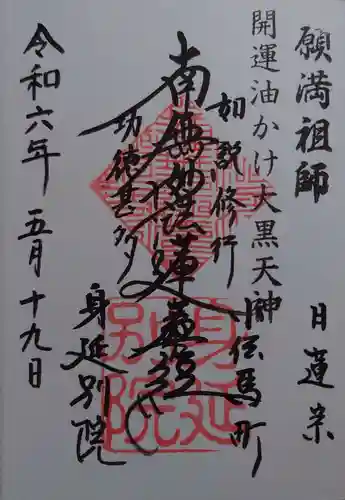 願満祖師
日蓮宗
開運油かけ大黒天神
小伝馬町
如説修行
南無妙法蓮華経
功徳甚多
身延別院
令和六年 五月十九日
身延別院